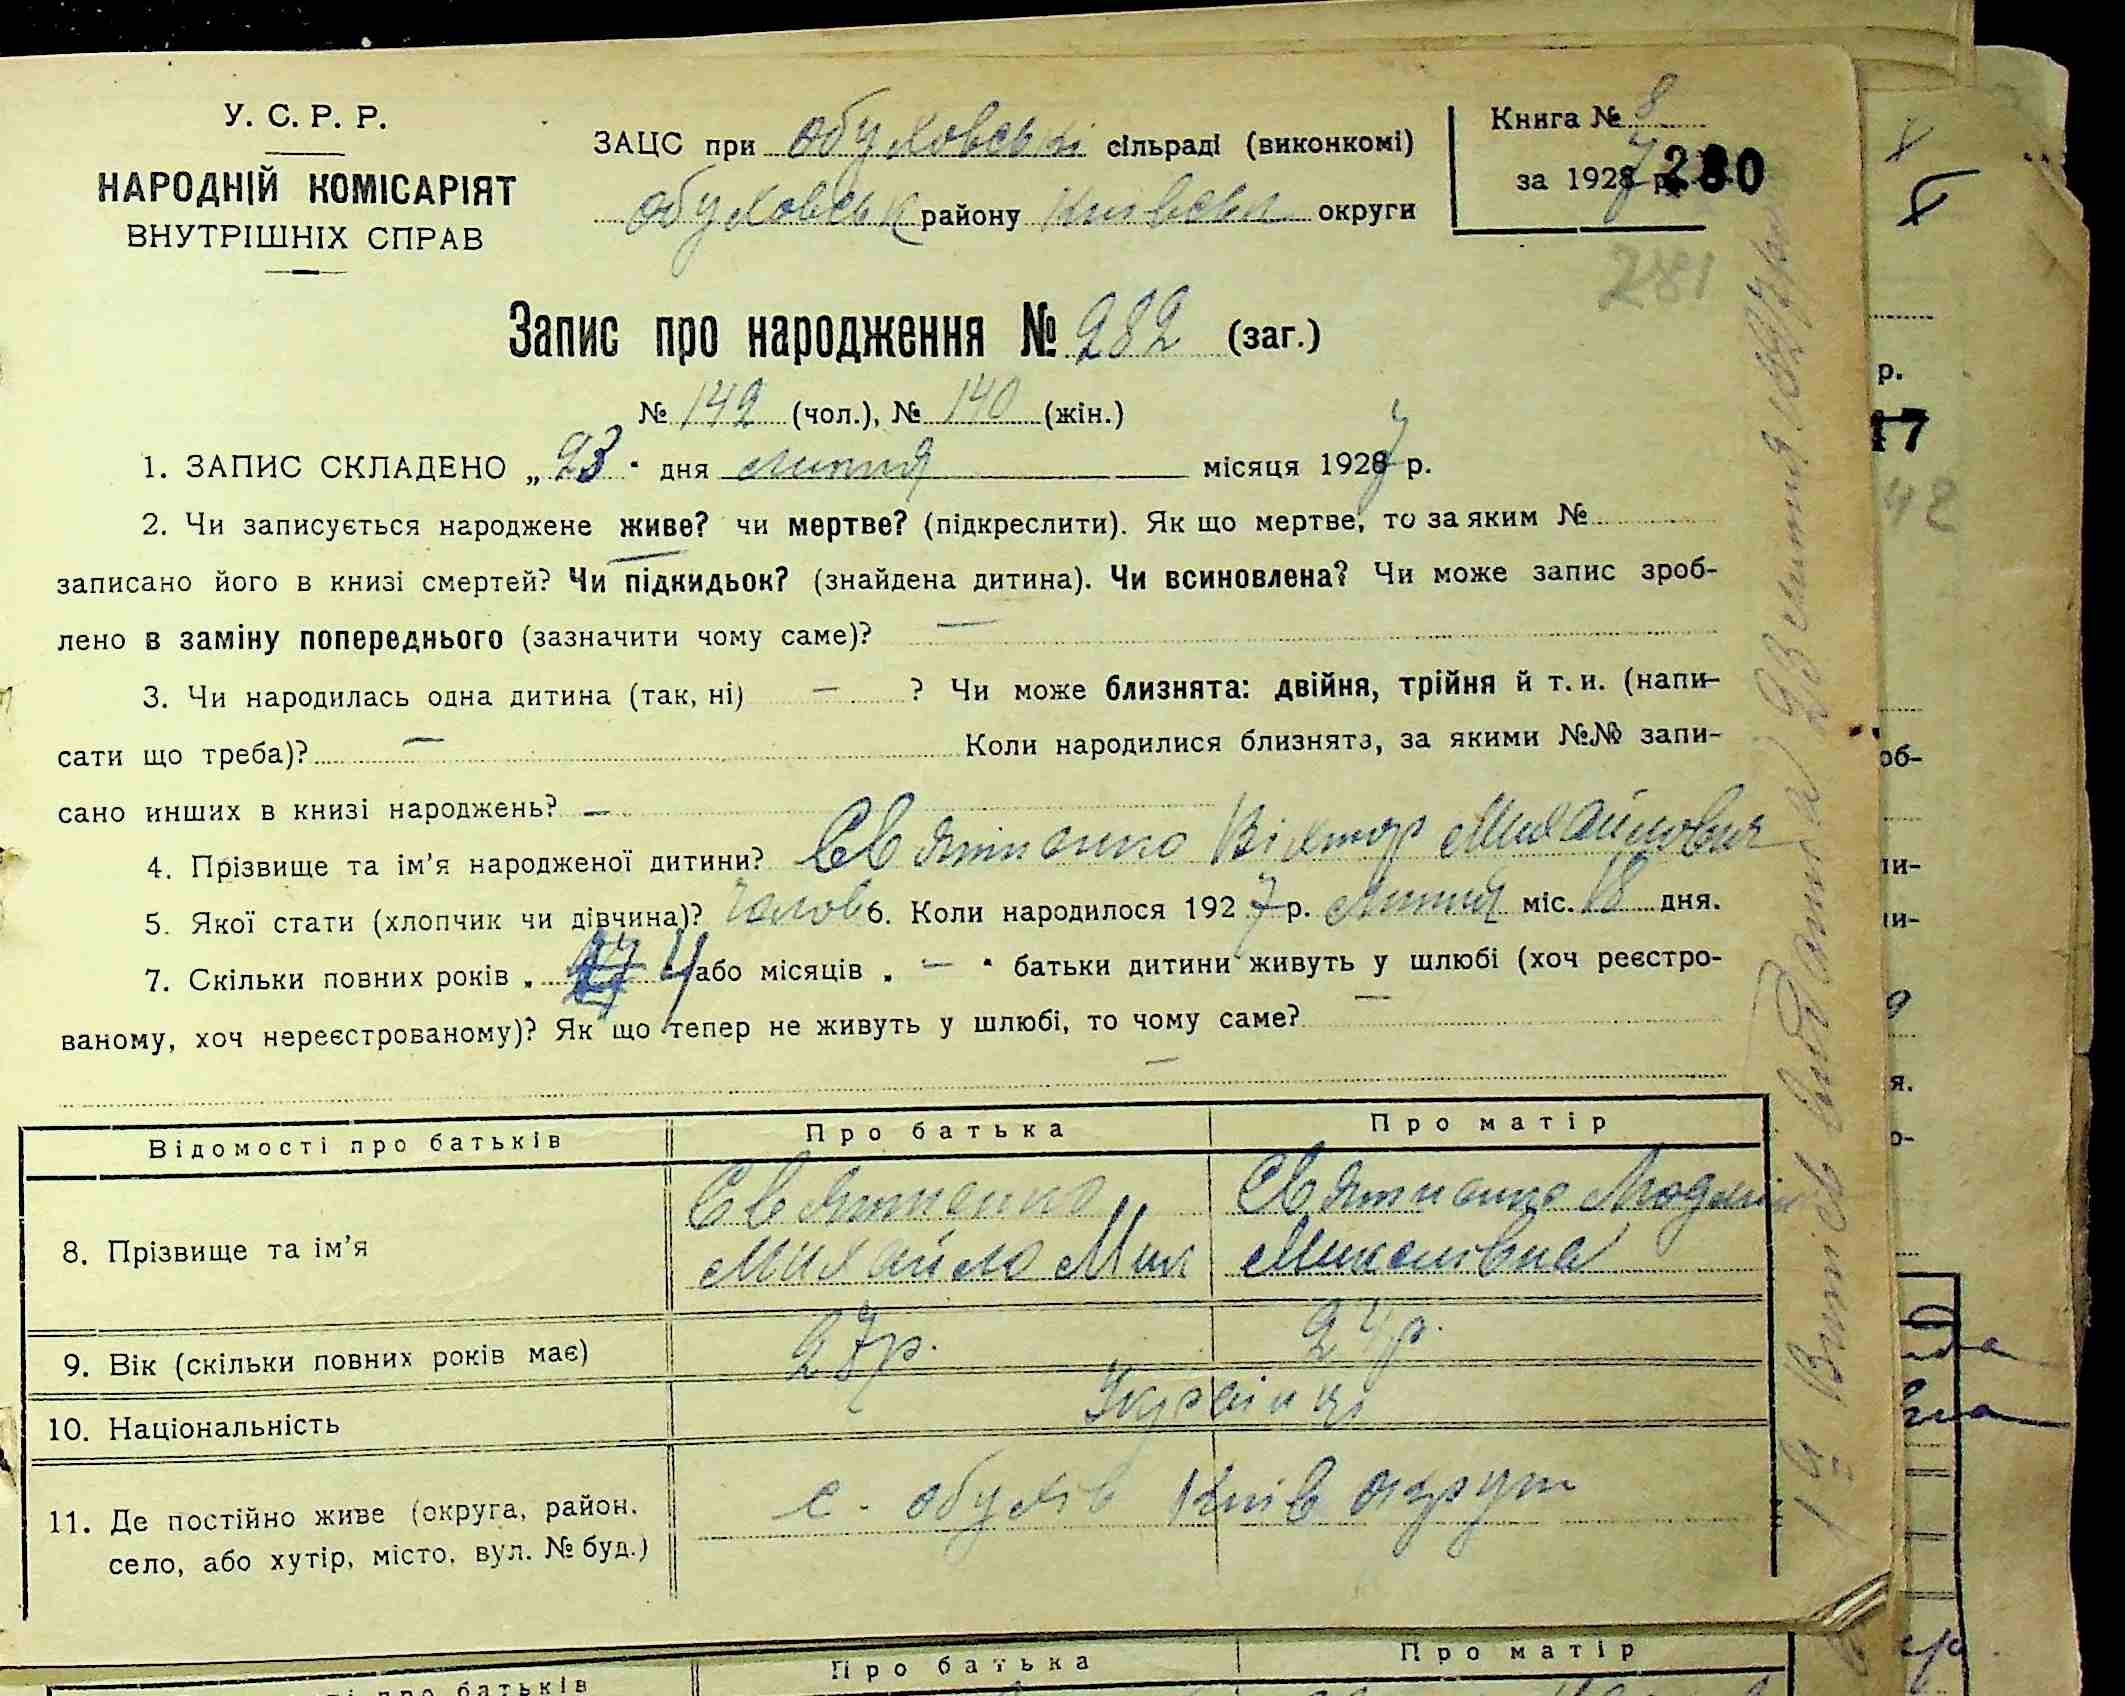 У. С. Р. Р.
НАРОДНІЙ КОМІСАРІЯТ
ВНУТРІШНІХ СПРАВ
ЗАЦС при Обуховські сільраді (виконкомі)
Обуховськ району Київськ округи
Книга № 8
за 1927 р.
280
281
Запис про народження № 282 (заг.)
№ 142 (чол.), № 140 (жін.)
1. ЗАПИС СКЛАДЕНО „ 23 " дня липня місяця 1927 р.
2. Чи записується народжене живе? чи мертве? (підкреслити). Як що мертве, то за яким №
записано його в книзі смертей? Чи підкидьок? (знайдена дитина). Чи всиновлена? Чи може запис зроб-
лено в заміну попереднього (зазначити чому саме)? —
3. Чи народилась одна дитина (так, ні) — ? Чи може близнята: двійня, трійня й т. и. (напи-
сати що треба)? — Коли народилися близнята, за якими №№ запи-
сано инших в книзі народжень? —
4. Прізвище та ім'я народженої дитини? Святненко Віктор Михайлович
5. Якої стати (хлопчик чи дівчина)? чолов 6. Коли народилося 1927 р. липня міс. 18 дня.
7. Скільки повних років „ 4 або місяців „ — " батьки дитини живуть у шлюбі (хоч реєстро-
ваному, хоч нереєстрованому)? Як що тепер не живуть у шлюбі, то чому саме? —
Відомості про батьків Про батька Про матір
8. Прізвище та ім'я
Святненко
Михайло Мик
Святненко Людмил
Миколівна
9. Вік (скільки повних років має) 27 р. 24 р.
10. Національність Українці
11. Де постійно живе (округа, район,
село, або хутір, місто, вул. № буд.)
с. Обухів Київ округи
Витяг видано 23 липня 1927 р.
Про батька Про матір
про батьків
р.
17
42